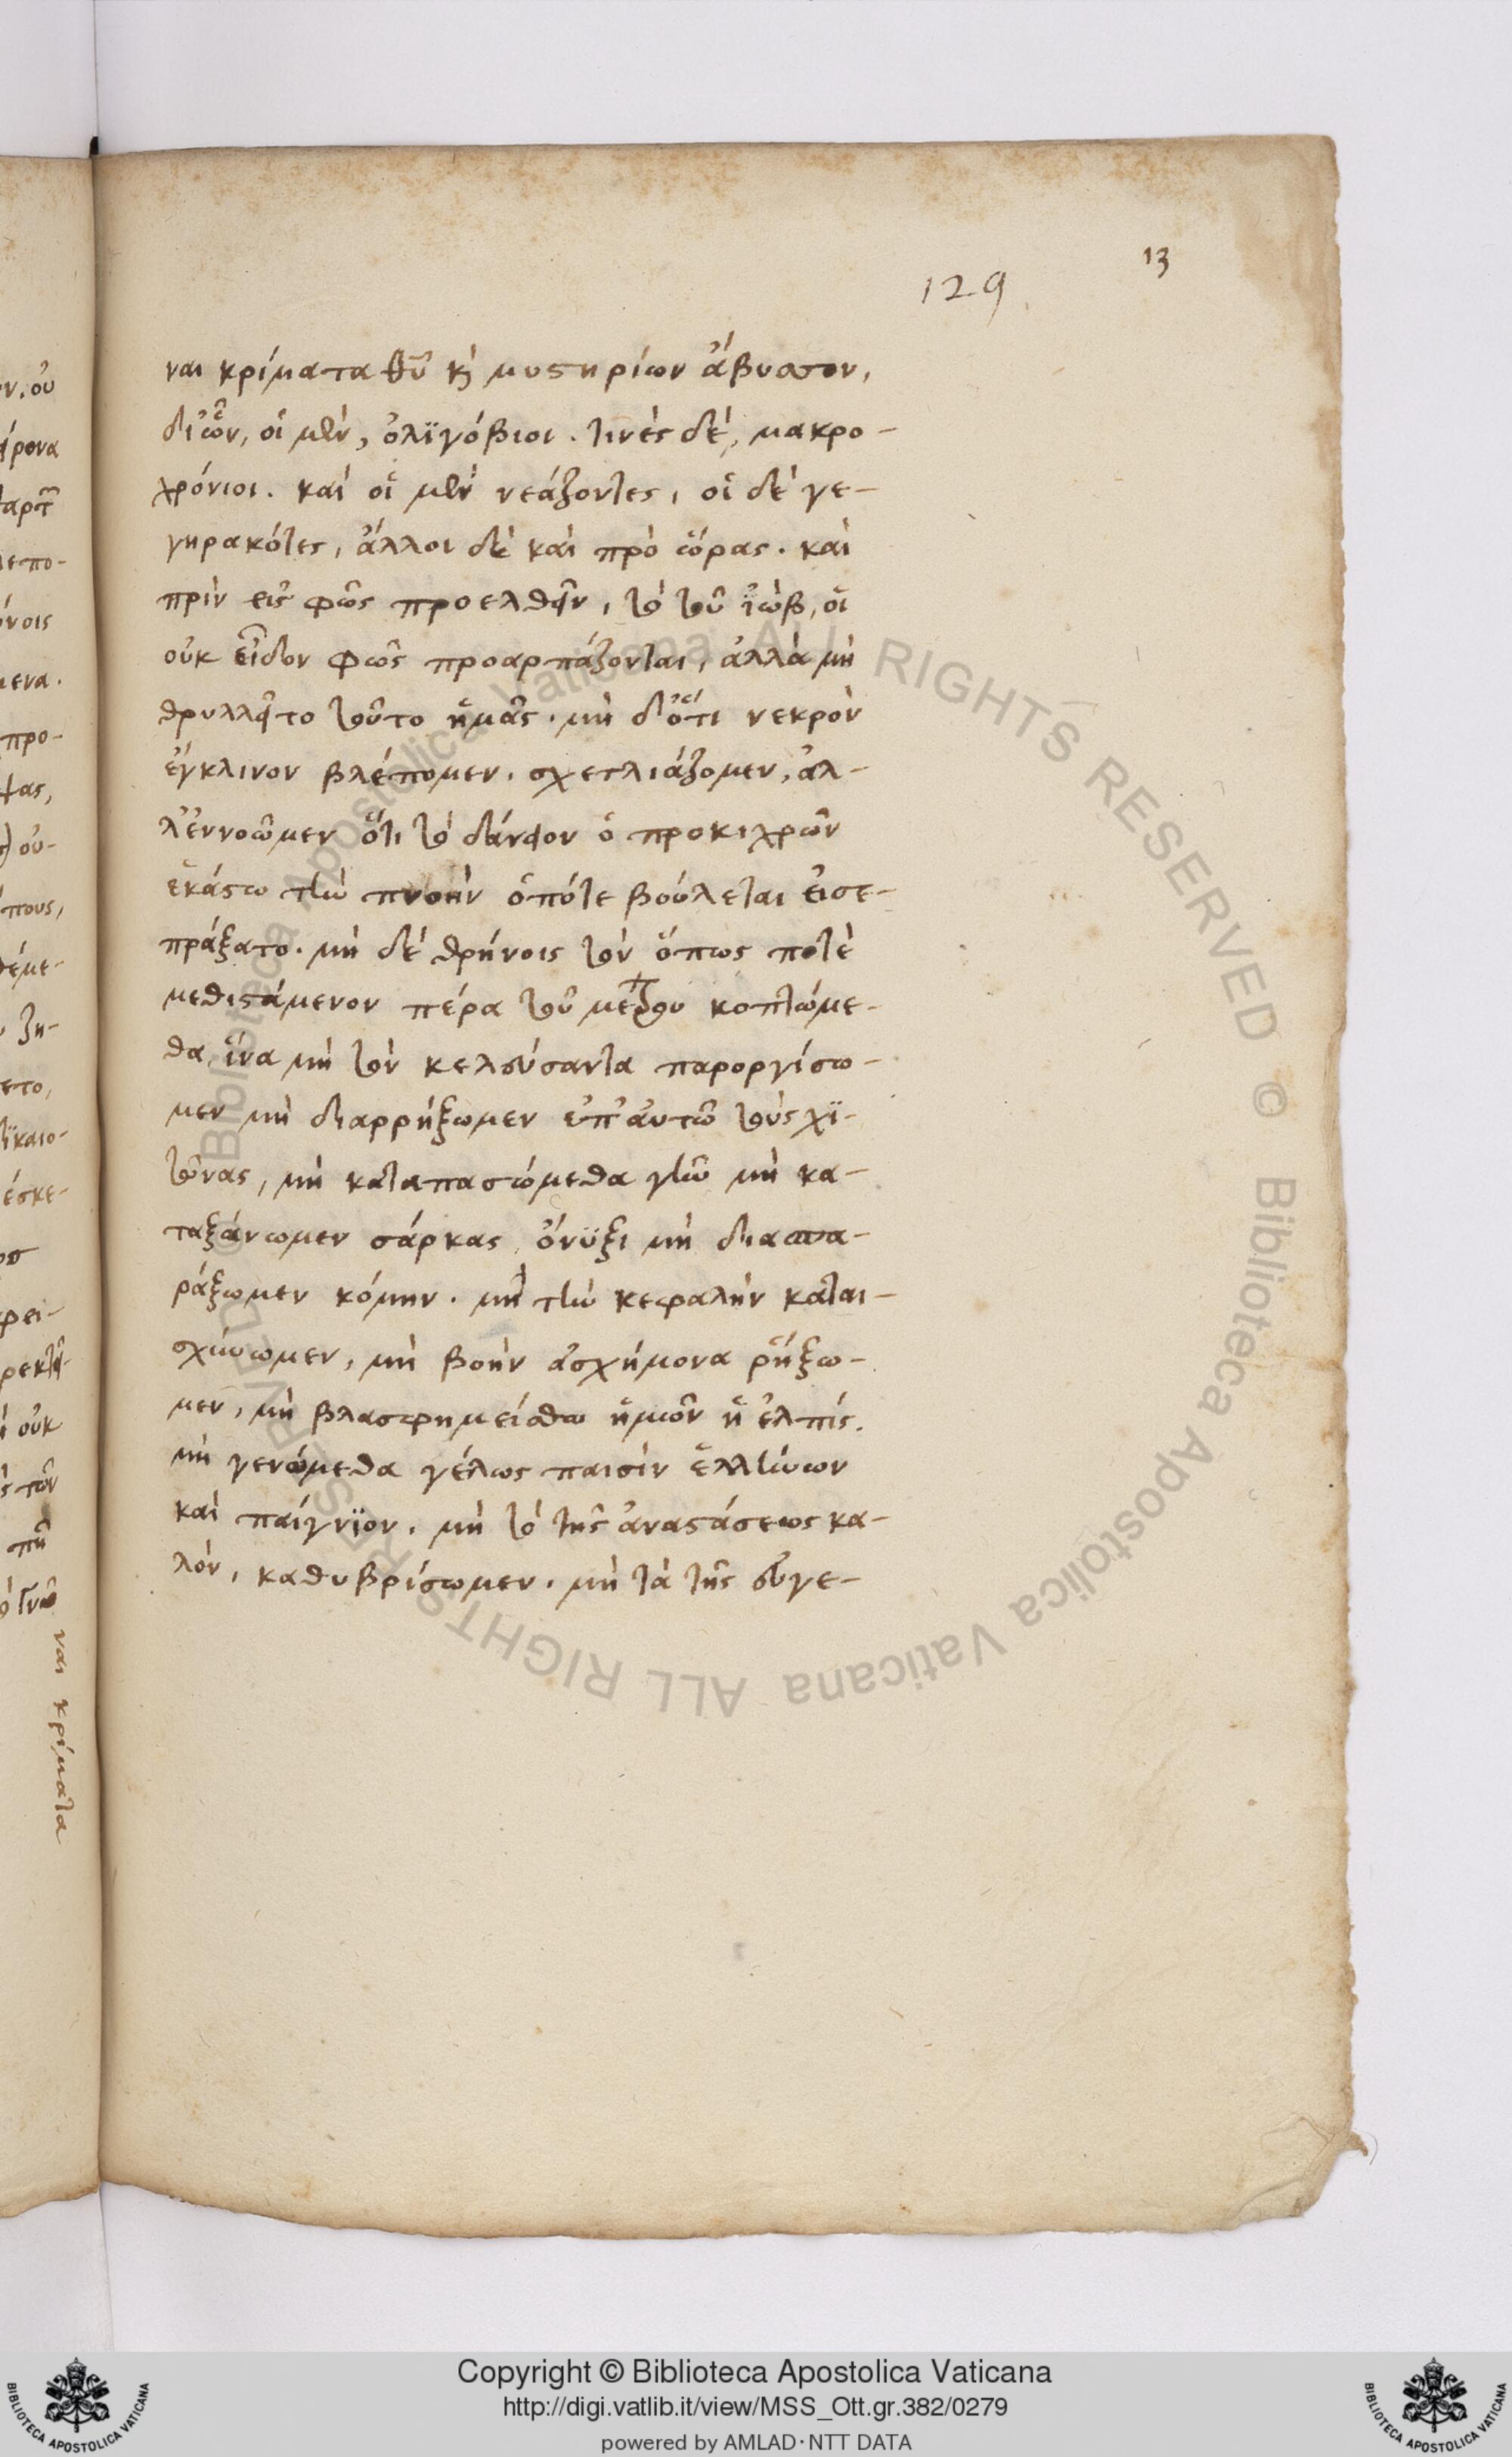 13
129
ναι κρίματα θυ̅ κ̀ μυστηρίων ἄβυσσον,
δι' ὧν, οἱ μὲν, ὀλϊγόβιοι. τινὲς δὲ, μακρο-
χρόνιοι. καὶ οἱ μὲν νεάζοντες, οἱ δὲ γε-
γηρακότες, ἄλλοι δὲ καὶ πρὸ ὥρας. καὶ
πρὶν εἰς φῶς προελθεῖν, τὸ τοῦ ἰὼβ, οἳ
οὐκ εἶδον φῶς προαρπάζονται, ἀλλὰ μὴ
θρυλλείτο τοῦτο ἡμᾶς. μὴ δ' ὅτι νεκρὸν
ἔγκλινον βλέπομεν. σχετλιάζομεν, ἀλ-
λ' ἐννοῶμεν ὅτι τὸ δάνειον ὁ προκιχρῶν
ἑκάστω τὴν πνοὴν ὁπότε βούλεται εἰσε-
πράξατο. μὴ δὲ θρήνοις τὸν ὅπως ποτὲ
μεθιστάμενον πέρα τοῦ μέτρου κοπτώμε-
θα, ἵνα μὴ τὸν κελεύσαντα παροργίσω-
μεν μὴ διαρρήξωμεν ἐπ' αὐτῶ τοὺς χϊ-
τῶνας, μὴ καταπασσώμεθα γῆν μὴ κα-
ταξάνωμεν σάρκας, ὄνϋξι μὴ διασπα-
ράξωμεν κόμην. μὴ τὴν κεφαλὴν καται-
σχύνωμεν, μὴ βοὴν ἀσχήμονα ῥήξω-
μεν, μὴ βλασφημείσθω ἡμῶν ἡ ἐλπίς.
μὴ γενώμεθα γέλως παισὶν ἑλλήνων
καὶ παίγνϊον. μὴ τὸ τῆς ἀναστάσεως κα-
λὸν, καθυβρίσωμεν. μὴ τὰ τῆς εὐγε-
ναι κρίματα
Copyright © Biblioteca Apostolica Vaticana
http://digi.vatlib.it/view/MSS_Ott.gr.382/0279
powered by AMLAD·NTT DATA